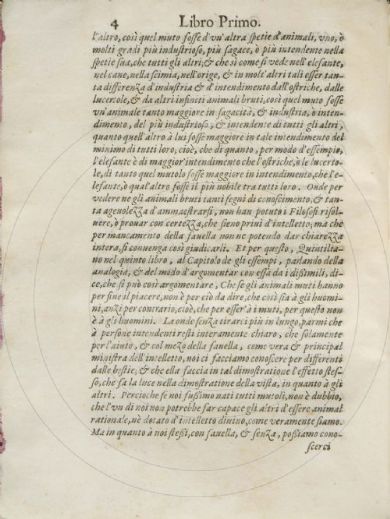 4 Libro Primo.
l'altro, così quel muto fosse d'vn'altra spetie d'animali, vno, ò
molti gradi più industrioso, più sagace, ò più intendente nella
spetie sua, che tutti gli altri; & che sì come si vede nell'elefante,
nel cane, nella scimia, nell'orige, & in molt'altri tali esser tan-
ta differenza d'industria & d'intendimento dall'ostriche, dalle
lucertole, & da altri infiniti animali bruti, così quel muto fosse
vn'animale tanto maggiore in sagacità, & industria, ò inten-
dimento, del più industrioso, & intendente di tutti gli altri,
quanto quell'altro à lui fosse maggiore in tale intendimento del
minimo di tutti loro, cioè, che di quanto, per modo d'essempio,
l'elefante è di maggior'intendimento che l'ostriche, ò le lucerto-
le, di tanto quel mutolo fosse maggiore in intendimento, che l'e-
lefante, ò qual'altro fosse il più nobile tra tutti loro. Onde per
vedere ne gli animali bruti tanti segni di conoscimento, & tan-
ta ageuolezza d'ammaestrarsi, non han potuto i Filosofi risol-
uere, ò prouar con certezza, che sieno priui d'intelletto; ma che
per mancamento della fauella non ne potendo dar chiarezza
intera, si conuenga così giudicarli. Et per questo, Quintilia-
no nel quinto libro, al Capitolo de gli essempi, parlando della
analogia, & del modo d'argomentar con essa da i dissimili, di-
ce, che si può così argomentare, Che se gli animali muti hanno
per fine il piacere, non è per ciò da dire, che così sia à gli huomi-
ni, anzi per contrario, cioè, che per esser'à i muti, per questo non
è à gli huomini. Laonde senza stirarci più in lungo, parmi che
à persone intendenti resti interamente chiaro, che solamente
per l'aiuto, & col mezo della fauella, come vera & principal
ministra dell'intelletto, noi ci facciamo conoscere per differenti
dalle bestie, & che ella faccia in tal dimostratione l'effetto stes-
so, che fà la luce nella dimostratione della vista, in quanto à gli
altri. Percioche se noi fussimo nati tutti mutoli, non è dubbio,
che l'vn di noi non potrebbe far capace gli altri d'essere animal
rationale, nè dotato d'intelletto diuino, come veramente siamo.
Ma in quanto à noi stessi, con fauella, & senza, possiamo cono-
scerci